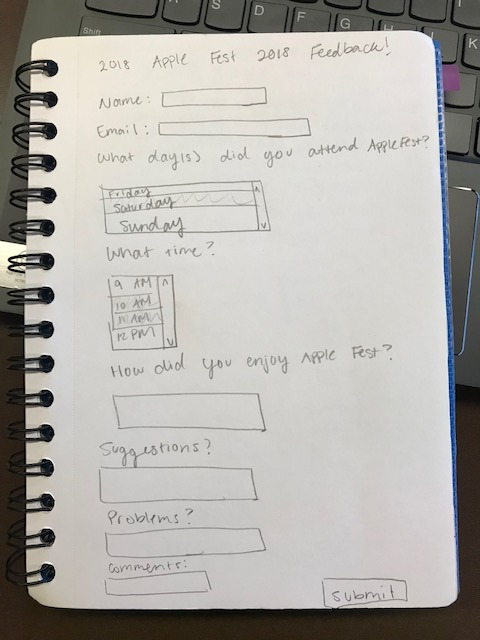 S D F G H
Shift
K
2018 Apple Fest 2018 Feedback!
Name:
Email:
What day(s) did you attend AppleFest?
Friday
Saturday
Sunday
What time?
9 AM
10 AM
11 AM
12 PM
How did you enjoy Apple Fest?
Suggestions?
Problems?
Comments:
submit